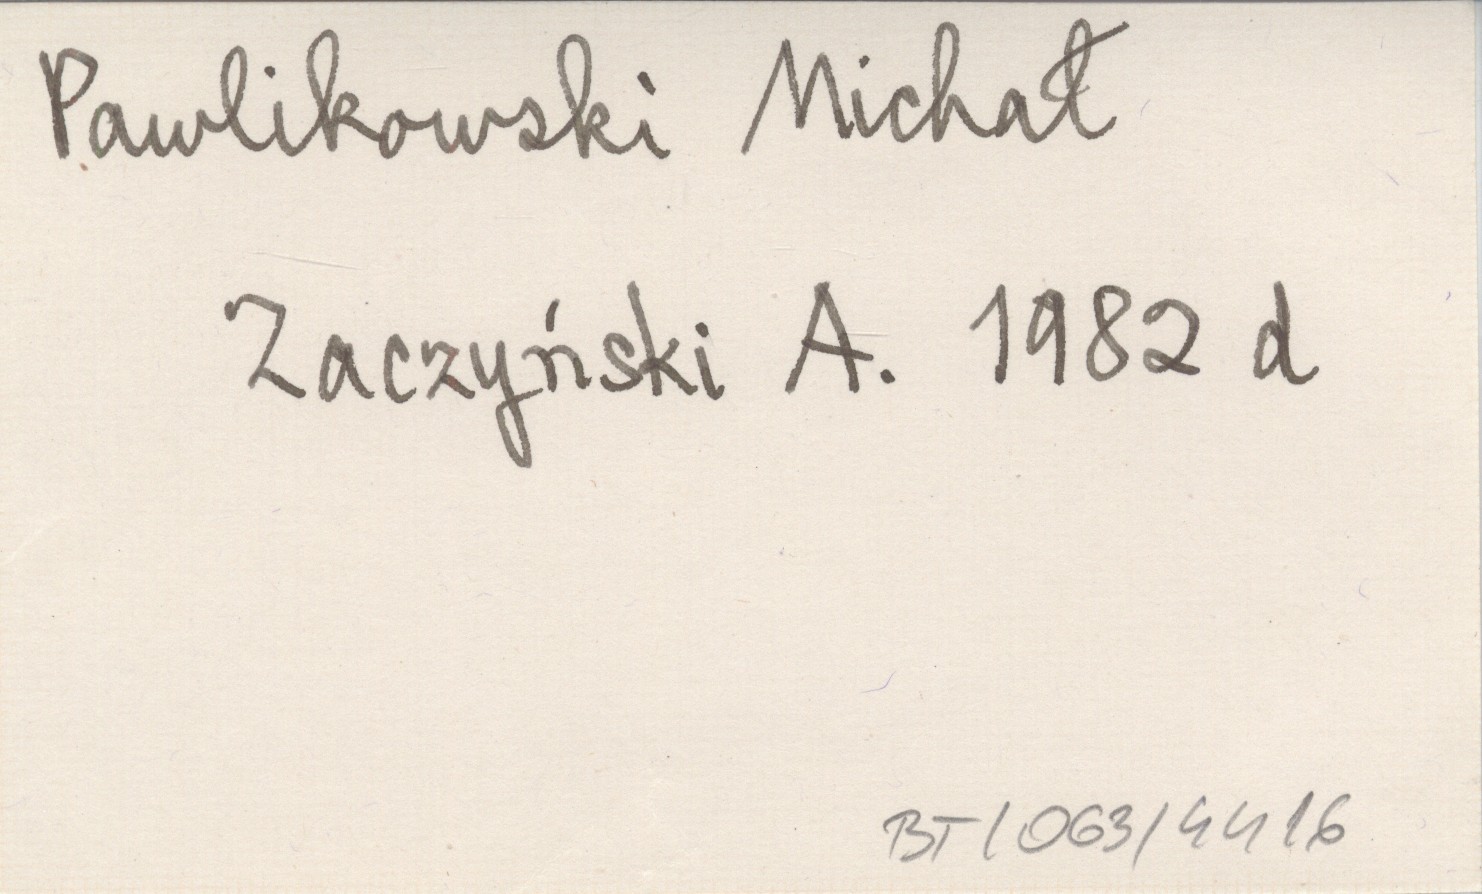 Pawlikowski Michał
Zaczyński A. 1982 d
BT/063/4416